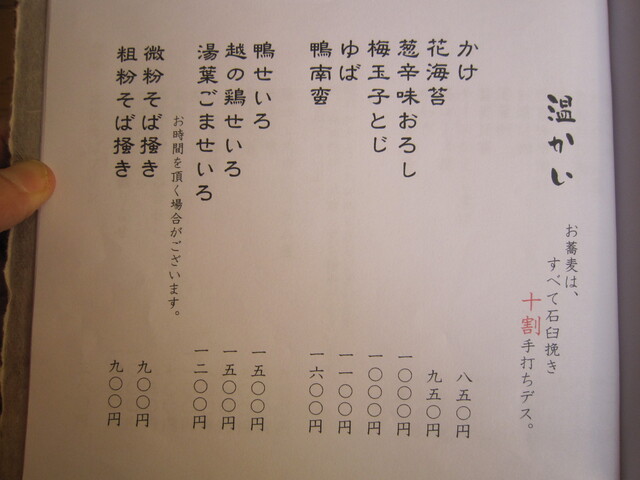 温かい
お蕎麦は、
すべて石臼挽き
十割手打ちデス。
かけ 八五〇円
花海苔 九五〇円
葱辛味おろし 一〇〇〇円
梅玉子とじ 一〇〇〇円
ゆば 一一〇〇円
鴨南蛮 一六〇〇円
鴨せいろ 一五〇〇円
越の鶏せいろ 一五〇〇円
湯葉ごませいろ 一二〇〇円
お時間を頂く場合がございます。
微粉そば掻き 九〇〇円
粗粉そば掻き 九〇〇円